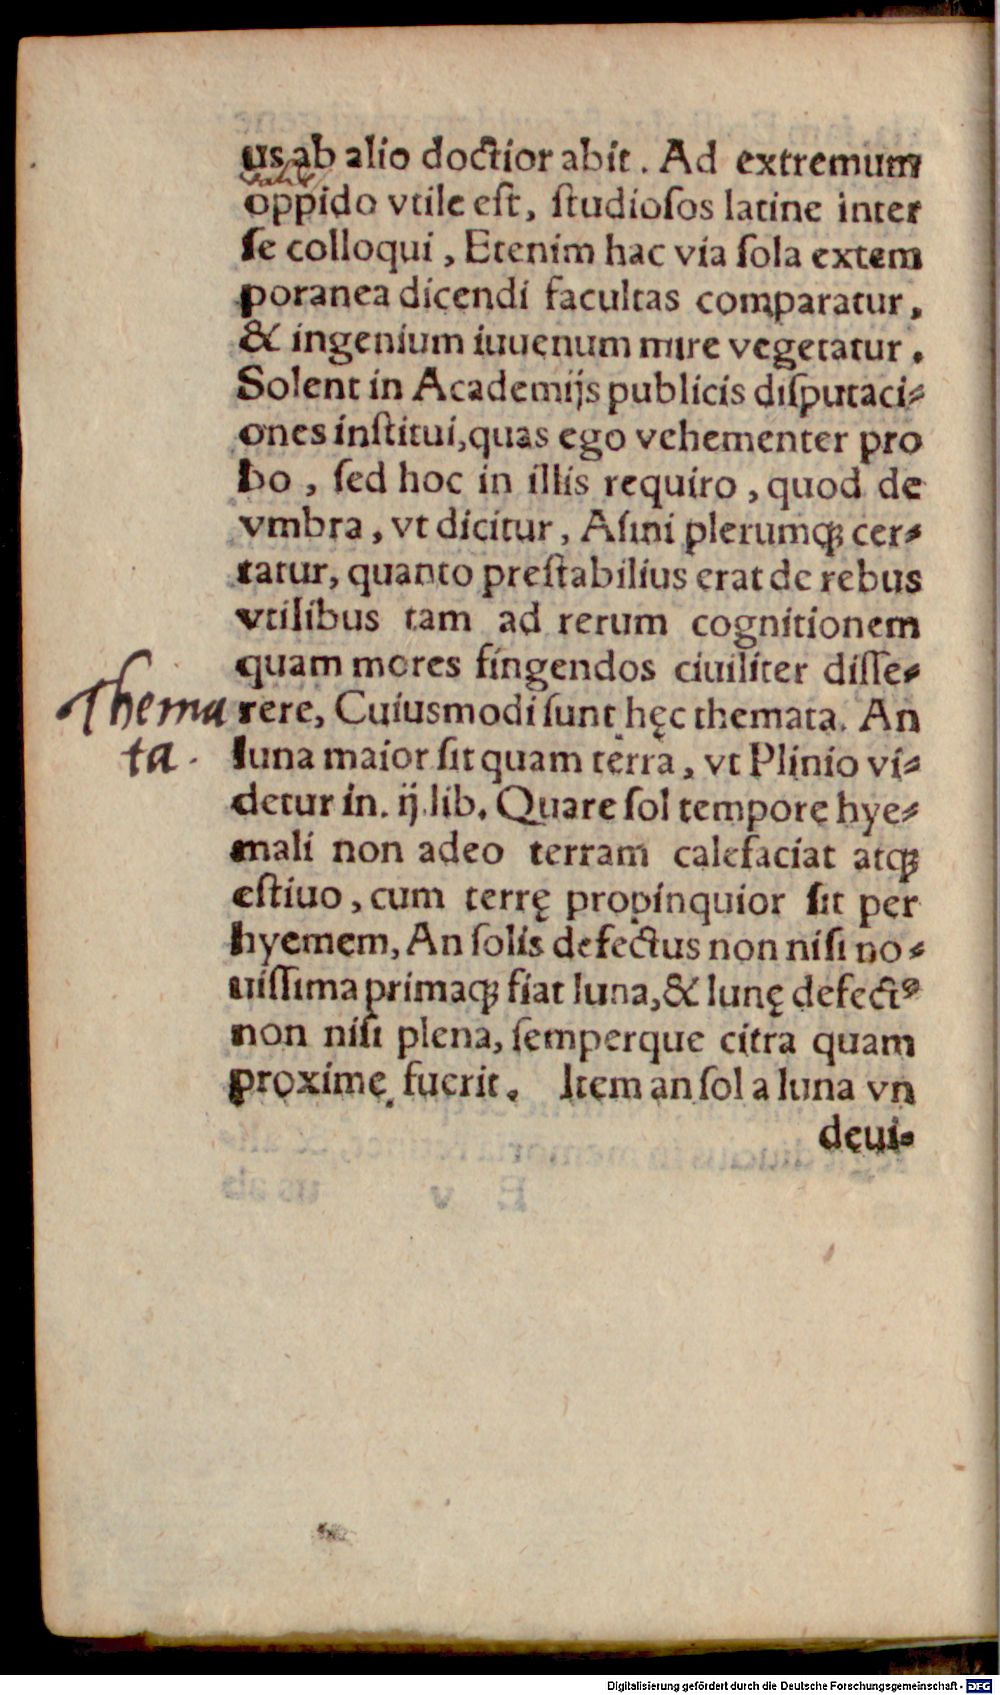 us ab alio doctior abit. Ad extremum
valde
oppido vtile est, ſtudioſos latine inter
ſe colloqui, Etenim hac via ſola extem
poranea dicendi facultas comparatur,
& ingenium iuuenum mire vegetatur.
Solent in Academijs publicis diſputaci⸗
ones inſtitui, quas ego vehementer pro
bo, ſed hoc in illis requiro, quod de
vmbra, vt dicitur, Aſini plerumqꝫ cer⸗
tatur, quanto preſtabilius erat de rebus
vtilibus tam ad rerum cognitionem
quam mores fingendos ciuiliter diſſe⸗
Thema
rere, Cuiusmodi ſunt hęc themata. An
ta.
luna maior ſit quam terra, vt Plinio vi⸗
detur in. ij. lib. Quare ſol tempore hye⸗
mali non adeo terram calefaciat atqꝫ
eſtiuo, cum terrę propinquior ſit per
hyemem, An ſolis defectus non niſi no⸗
uiſſima primaqꝫ fiat luna, & lunę defectꝰ
non niſi plena, ſemperque citra quam
proxime fuerit. Item an ſol a luna vn
deui⸗
Digitalisierung gefördert durch die Deutsche Forschungsgemeinschaft - DFG